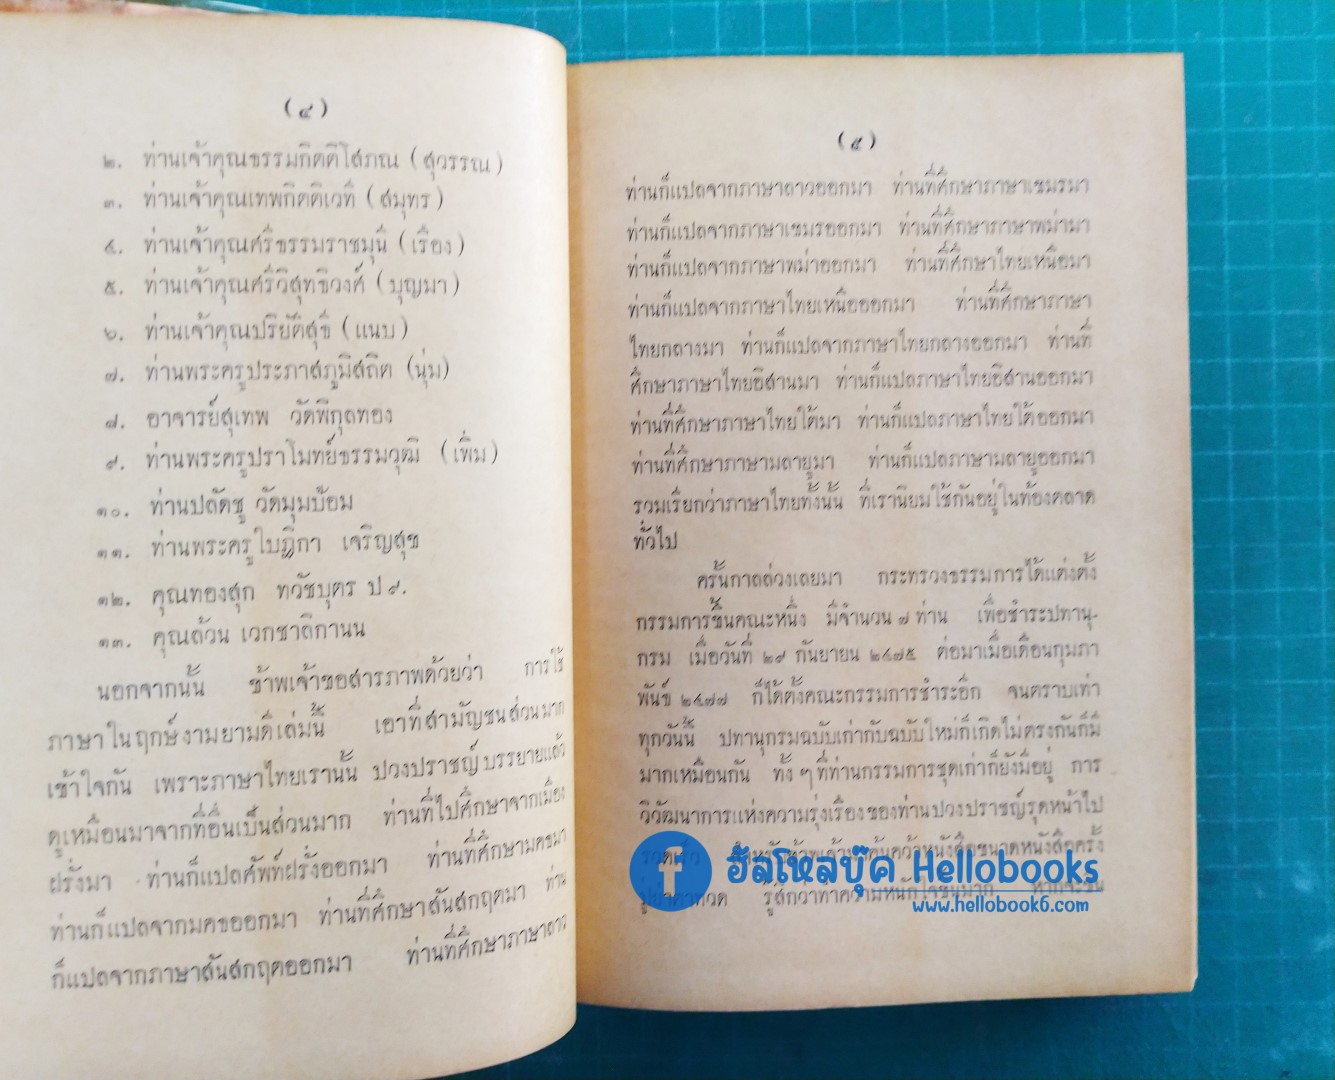 (๔)
๒. ท่านเจ้าคุณธรรมกิตติโสภณ (สุวรรณ)
๓. ท่านเจ้าคุณเทพกิตติเวที (สมุทร)
๔. ท่านเจ้าคุณศรีธรรมราชมุนี (เรือง)
๕. ท่านเจ้าคุณศรีวิสุทธิวงศ์ (บุญมา)
๖. ท่านเจ้าคุณปริยัติสุธี (แนบ)
๗. ท่านพระครูประภาสภูมิสถิต (นุ่ม)
๘. อาจารย์สุเทพ วัดพิกุลทอง
๙. ท่านพระครูปราโมทย์ธรรมวุฒิ (เพิ่ม)
๑๐. ท่านปลัดชู วัดมุมป้อม
๑๑. ท่านพระครูใบฎีกา เจริญสุข
๑๒. คุณทองสุก ทวัชบุตร ป ๙.
๑๓. คุณล้วน เวกชาลิกานน
นอกจากนั้น ข้าพเจ้าขอสารภาพด้วยว่า การใช้
ภาษาในฤกษ์งามยามดีเล่มนี้ เอาที่สามัญชนส่วนมาก
เข้าใจกัน เพราะภาษาไทยเรานั้น ปวงปราชญ์บรรยายแล้ว
ดูเหมือนมาจากที่อื่นเป็นส่วนมาก ท่านที่ไปศึกษาจากเมือง
ฝรั่งมา ท่านก็แปลศัพท์ฝรั่งออกมา ท่านที่ศึกษามคธมา
ท่านก็แปลจากมคธออกมา ท่านที่ศึกษาสันสกฤตมา ท่าน
ก็แปลจากภาษาสันสกฤตออกมา ท่านที่ศึกษาภาษาลาว
(๕)
ท่านก็แปลจากภาษาลาวออกมา ท่านที่ศึกษาภาษาเขมรมา
ท่านก็แปลจากภาษาเขมรออกมา ท่านที่ศึกษาภาษาพม่ามา
ท่านก็แปลจากภาษาพม่าออกมา ท่านที่ศึกษาไทยเหนือมา
ท่านก็แปลจากภาษาไทยเหนือออกมา ท่านที่ศึกษาภาษา
ไทยกลางมา ท่านก็แปลจากภาษาไทยกลางออกมา ท่านที่
ศึกษาภาษาไทยอิสานมา ท่านก็แปลภาษาไทยอิสานออกมา
ท่านที่ศึกษาภาษาไทยใต้มา ท่านก็แปลภาษาไทยใต้ออกมา
ท่านที่ศึกษาภาษามลายูมา ท่านก็แปลภาษามลายูออกมา
รวมเรียกว่าภาษาไทยทั้งนั้น ที่เรานิยมใช้กันอยู่ในท้องตลาด
ทั่วไป
ครั้นกาลล่วงเลยมา กระทรวงธรรมการได้แต่งตั้ง
กรรมการขึ้นคณะหนึ่ง มีจำนวน ๗ ท่าน เพื่อชำระปทานุ-
กรม เมื่อวันที่ ๒๙ กันยายน ๒๔๗๕ ต่อมาเมื่อเดือนกุมภา
พันธ์ ๒๔๗๗ ก็ได้ตั้งคณะกรรมการชำระอีก จนตราบเท่า
ทุกวันนี้ ปทานุกรมฉบับเก่ากับฉบับใหม่ก็เกิดไม่ตรงกันก็มี
มากเหมือนกัน ทั้ง ๆ ที่ท่านกรรมการชุดเก่าก็ยังมีอยู่ การ
วิวัฒนาการแห่งความรุ่งเรืองของท่านปวงปราชญ์รุดหน้าไป
รวดเร็ว ข้าพเจ้า ค้นคว้าหนังสือขนาดหนังสือครั้ง
ปู่ย่าตาทวด รู้สึกว่าทำความหนักใจขึ้นมาก
ฮัลโหลบุ๊ค Hellobooks
www.hellobook6.com